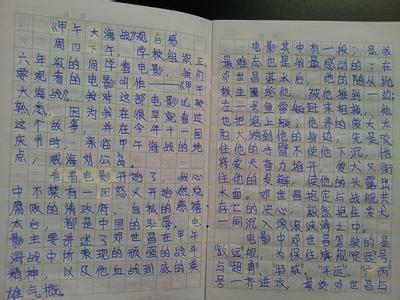 《甲午大海战》观后感
周四下午，学校组织五
六年级的同学看电影，我们
要观看的电影叫作——《甲午
大海战》。我对这部电影比较
熟悉，因为我在很早就看过
这个故事，并在今年十一国
庆节时，亲临甲午海战的地
点，威海刘公岛。
看着电影开始了，我心
中不禁有一团怒火开始燃烧
腐败的清政府、自私的慈禧
太后，都是中国的耻辱。电
影主要讲述了邓世昌在甲午
海战中所表现的顽强的战斗
精神，以及他血战到底的英
雄气概。
电影其中有一段；是我
最难忘也是我最感动的：在
邓世昌落水后，他的随从抛
救生圈给他，被他推到一边；
在一名鱼雷艇驶来相救，他
也把抱上艇，他养的爱犬太
阳犬游到他的身边，先是咬
住他的手臂不使他下沉，他
将爱犬奋力推开，爱犬又衔
住他的发辫，使他的头露出
水面。邓世昌抱定与战舰共
存亡的决心，毅然抱住爱犬
一同沉入滚滚波涛之中。
电影中邓世昌驾驶的是
“致远舰”，为保护旗舰定远号
与“超勇”、“扬威”、“平远”、“广丙”
号一齐进攻，最后与